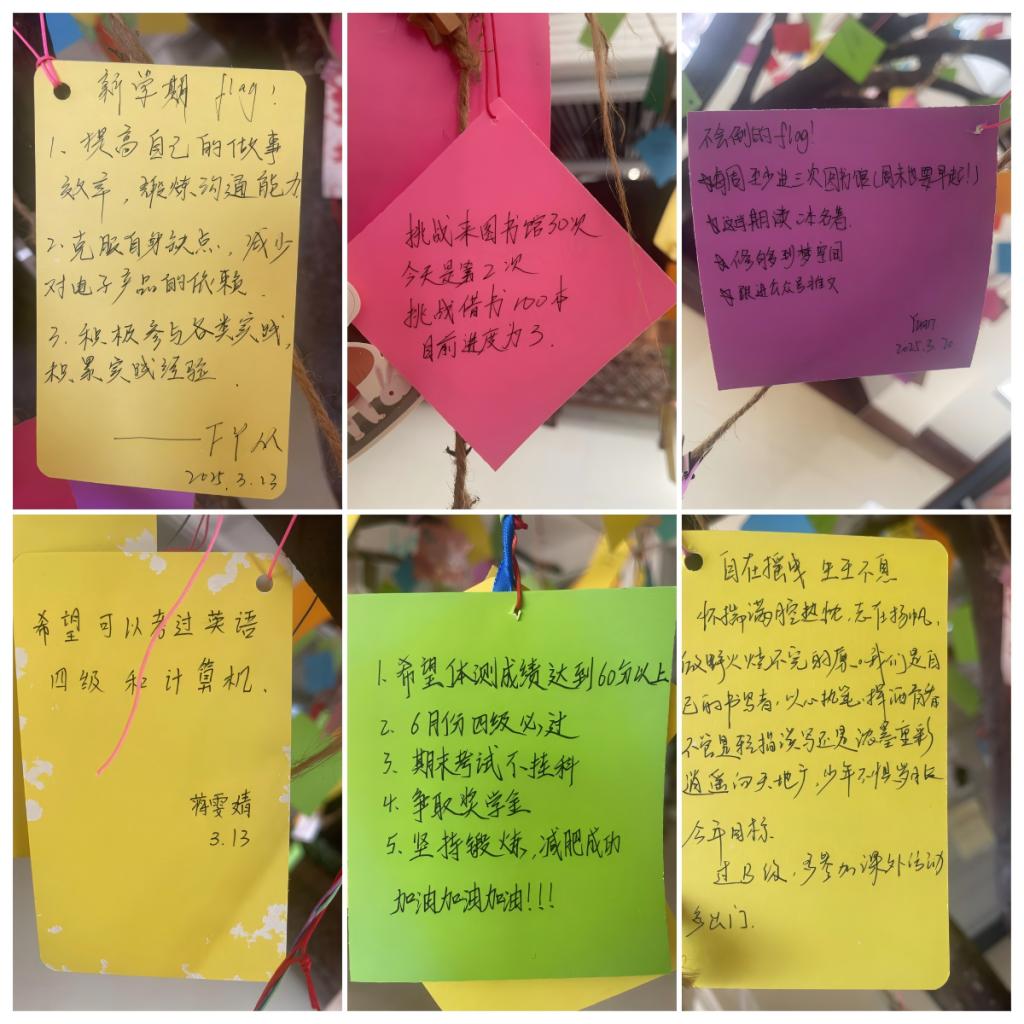 新学期 flag!
1、提高自己的做事
效率，锻炼沟通能力
2.克服自身缺点，减少
对电子产品的依赖.
3.积极参与各类实践,
积累实践经验.
2025.3.13
挑战来图书馆30次
今天是第2次
挑战借书100本
目前进度为3.
不会倒的flag!
每周至少进三次图书馆(周末也要早起!)
期读 本名著.
多到梦空间
跟进公众号推文
Yuan
2025.3.20
希望可以考过英语
四级和计算机.
蒋雯婧
3.13
1、希望体测成绩达到60分以上
2、6月份四级必过
3、期末考试不挂科
4、争取奖学金
5、坚持锻炼,减肥成功
加油加油加油!!!
自在摇曳 生生不息
怀揣满腔热忱,志在扬帆,
做野火烧不完的原。我们是自
己的书写者,以心执笔,挥洒青春
不管是轻描淡写还是浓墨重彩
逍遥向天地广,少年不惧岁月长
今年目标
过B级,多参加课外活动
多出门.